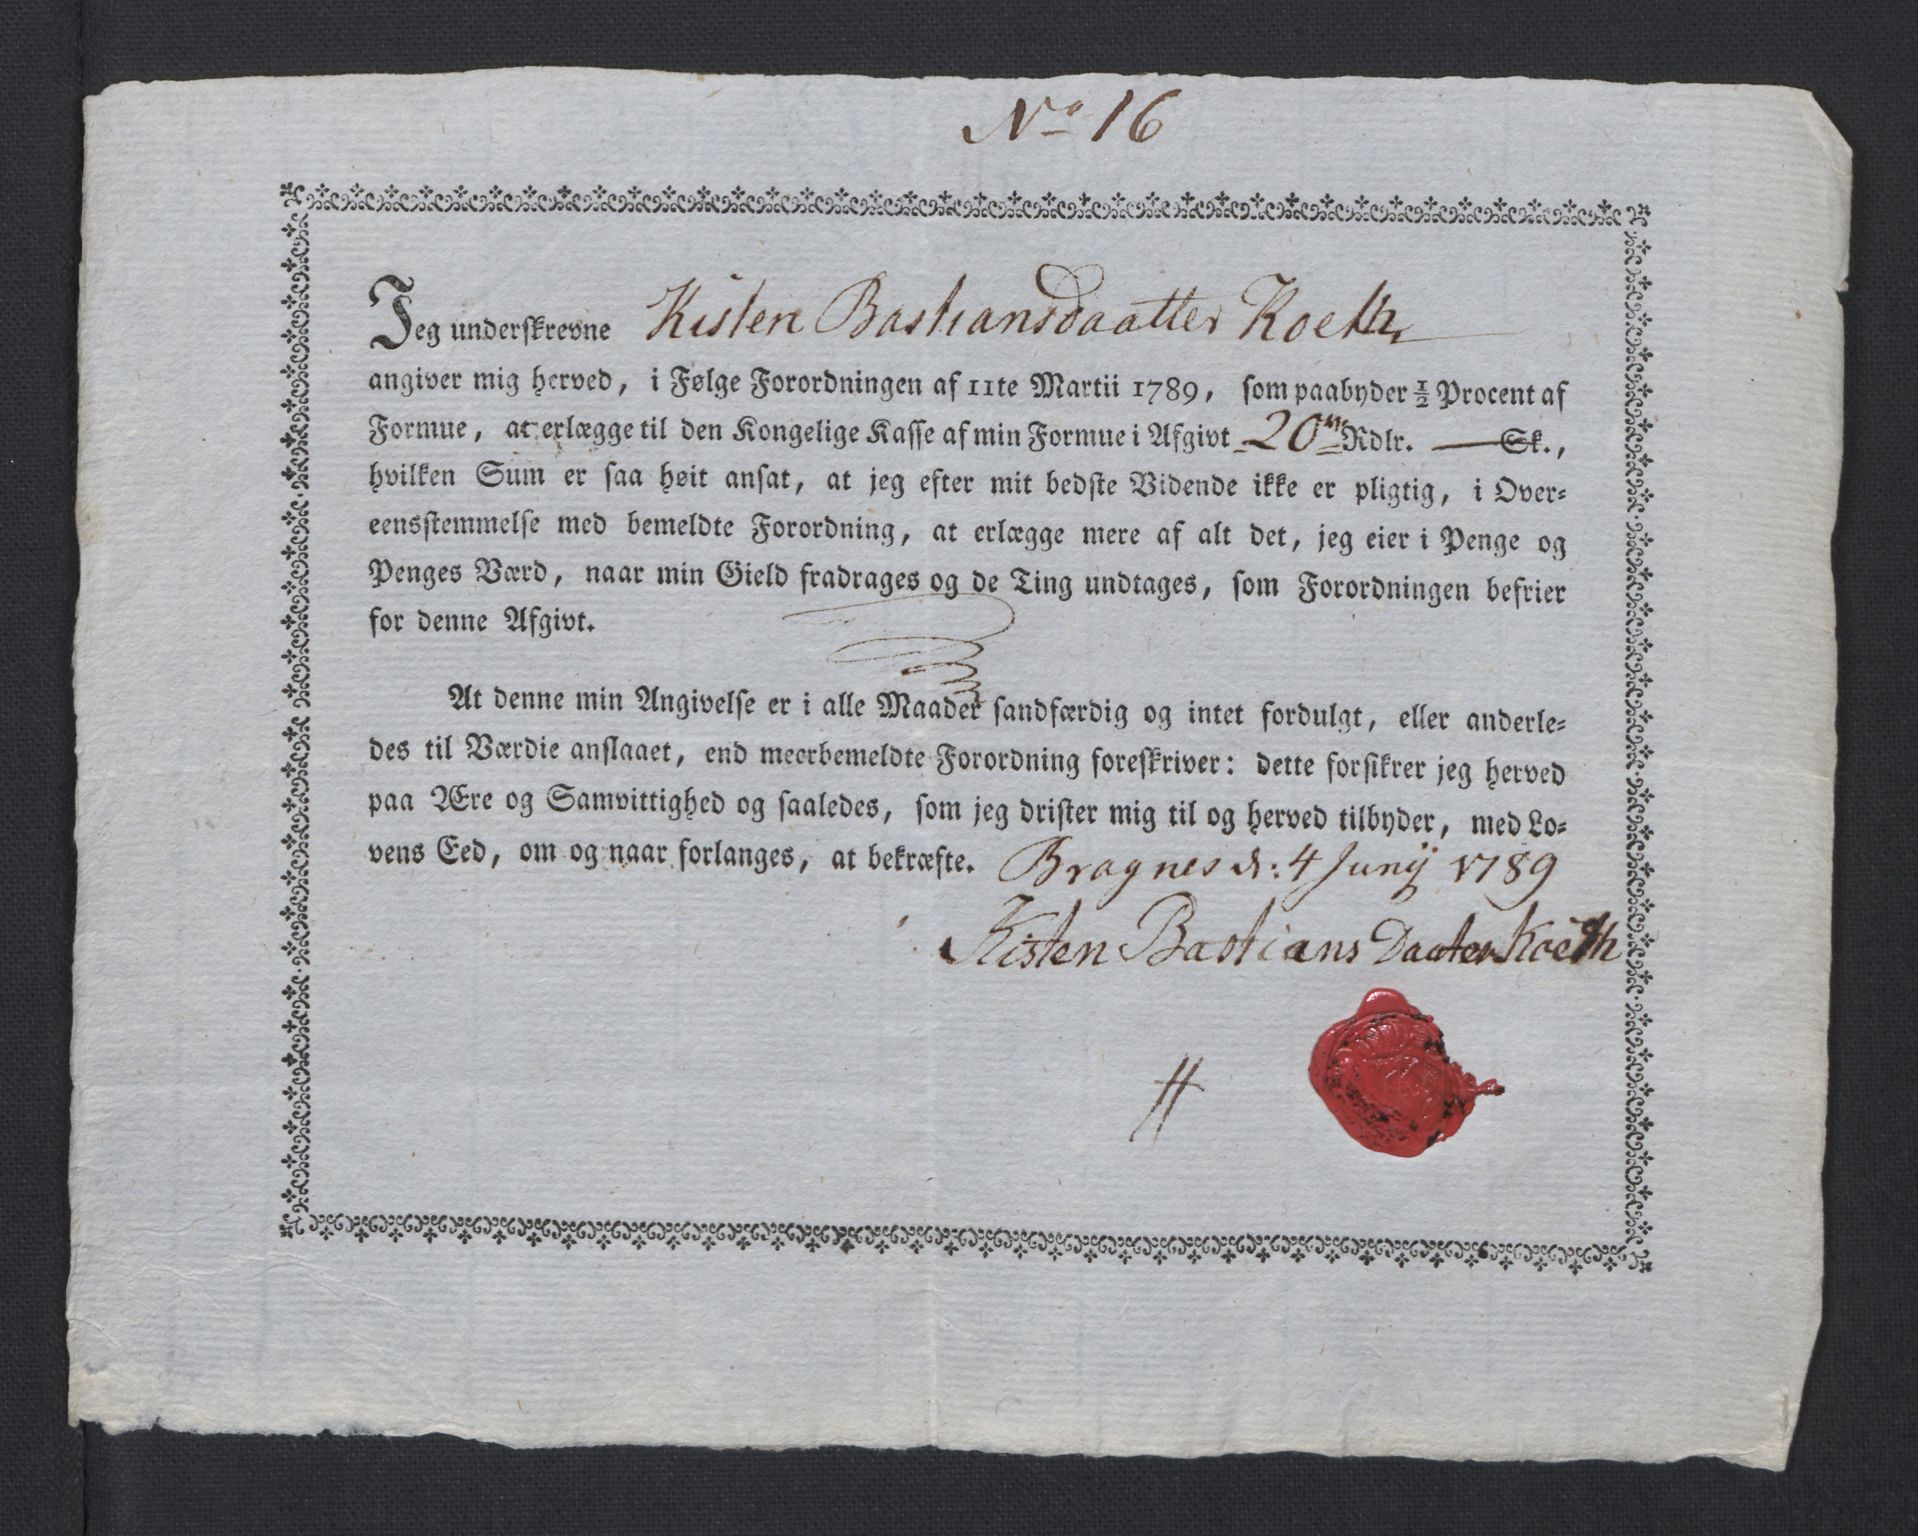 No 16
Jeg underskrevne Kisten Bastiansdaatter Koeth
angiver mig herved, i Følge Forordningen af 11te Martii 1789, som paabyder ½ Procent af
Formue, at erlægge til den Kongelige Kasse af min Formue i Afgivt 20 Rdlr. — Sk.,
hvilken Sum er saa høit ansat, at jeg efter mit bedste Vidende ikke er pligtig, i Over=
eensstemmelse med bemeldte Forordning, at erlægge mere af alt det, jeg eier i Penge og
Penges Værd, naar min Gield fradrages og de Ting undtages, som Forordningen befrier
for denne Afgivt.
At denne min Angivelse er i alle Maader sandfærdig og intet fordulgt, eller anderle=
des til Værdie anslaaet, end meerbemeldte Forordning foreskriver: dette forsikrer jeg herved
paa Ære og Samvittighed og saaledes, som jeg drister mig til og herved tilbyder, med Lo=
vens Eed, om og naar forlanges, at bekræfte. Bragnes d: 4 Junij 1789
Kisten Bastians Daater Koeth